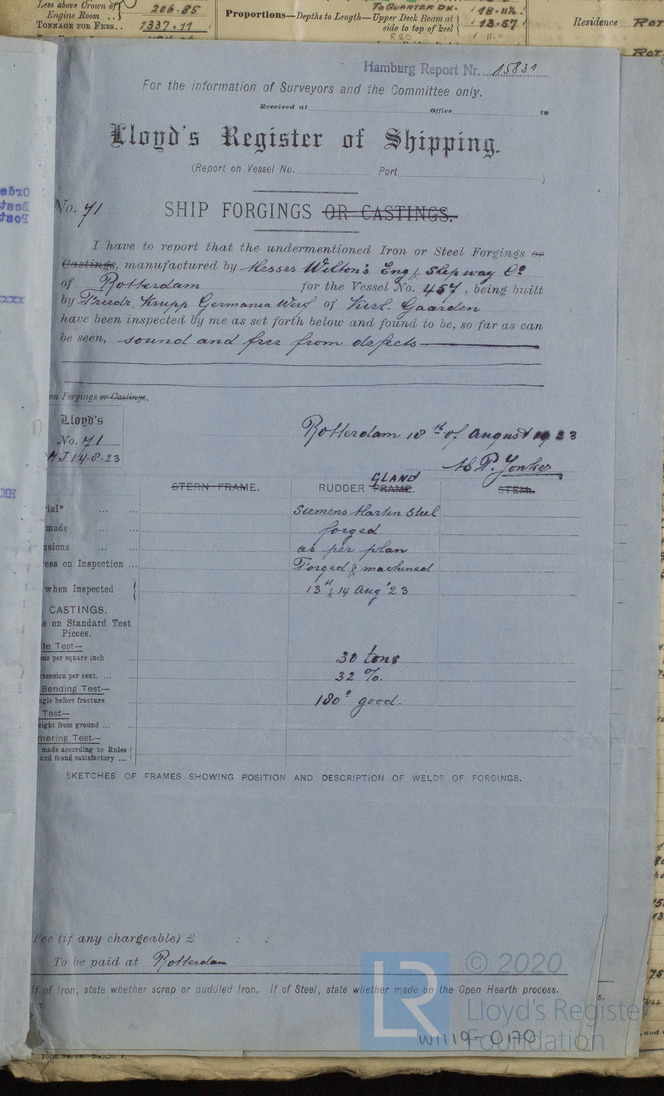 Less above Crown of Engine Room .. 206.85
TONNAGE FOR FEES.. 1337.11
Proportions—Depths to Length—Upper Deck Beam at side to top of keel
To QUARTER DK. 18.11½
13.57
Residence Rot
Hamburg Report Nr. 15831
For the information of Surveyors and the Committee only.
Received at Office 19
Lloyd's Register of Shipping.
(Report on Vessel No. Port )
No. 71
SHIP FORGINGS OR CASTINGS.
I have to report that the undermentioned Iron or Steel Forgings or
Castings, manufactured by Messrs Wilton's Eng & Slipway Co
of Rotterdam for the Vessel No. 457, being built
by Friedr. Krupp Germania Werf of Kiel. Gaarden
have been inspected by me as set forth below and found to be, so far as can
be seen, sound and free from defects
on Forgings or Castings.
Lloyd's
No. 71
14-8-23
Rotterdam 18th of August 1923
A. P. Jonker
STERN FRAME. RUDDER GLAND FRAME. STEM.
rial* ... ... Siemens Martin Steel
made forged
nsions ... as per plan
ress on Inspection ... Forged & machined
when Inspected 13th & 14 Aug '23
CASTINGS.
s on Standard Test
Pieces.
le Test—
ns per square inch 30 tons
xtension per cent. ... ... 32 %.
Bending Test—
ngle before fracture 180° good.
Test—
eight from ground ...
mering Test—
made according to Rules
and found satisfactory ...
SKETCHES OF FRAMES SHOWING POSITION AND DESCRIPTION OF WELDS OF FORGINGS.
Fee (if any chargeable) £ : :
To be paid at Rotterdam
If of Iron, state whether scrap or puddled Iron. If of Steel, state whether made on the Open Hearth process.
LR © 2020
Lloyd's Register
Foundation
W1119-0170